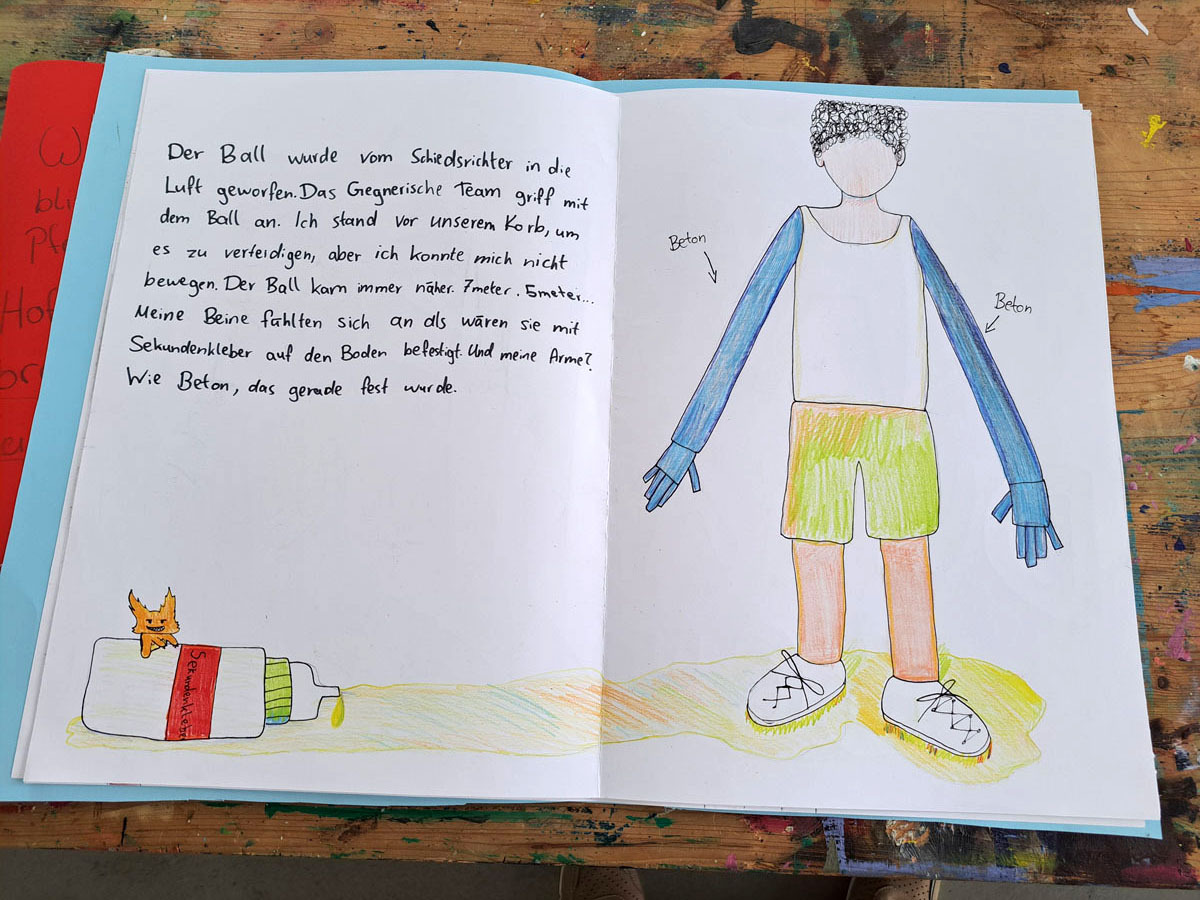 Der Ball wurde vom Schiedsrichter in die
Luft geworfen. Das Gegnerische Team griff mit
dem Ball an. Ich stand vor unserem Korb, um
es zu verteidigen, aber ich konnte mich nicht
bewegen. Der Ball kam immer näher. 7meter. 5meter...
Meine Beine fühlten sich an als wären sie mit
Sekundenkleber auf den Boden befestigt. Und meine Arme?
Wie Beton, das gerade fest wurde.
Sekundenkleber
Beton
Beton